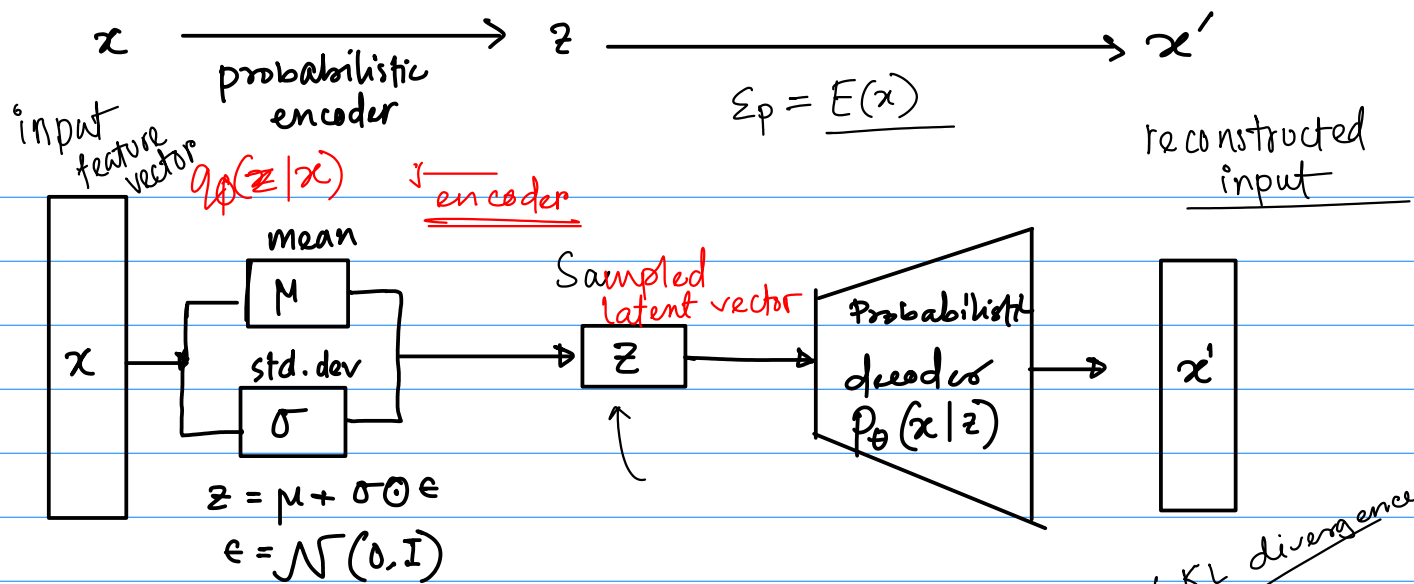 x → z → x'
probabilistic
encoder
Σp = E(x)
input
feature
vector
qϕ(z|x)
encoder
reconstructed
input
mean
μ
Sampled
latent vector
x
std.dev
σ
z
Probabilistic
decoder
Pθ(x|z)
x'
z = μ + σ⊙ϵ
ϵ = N(0,I)
KL divergence